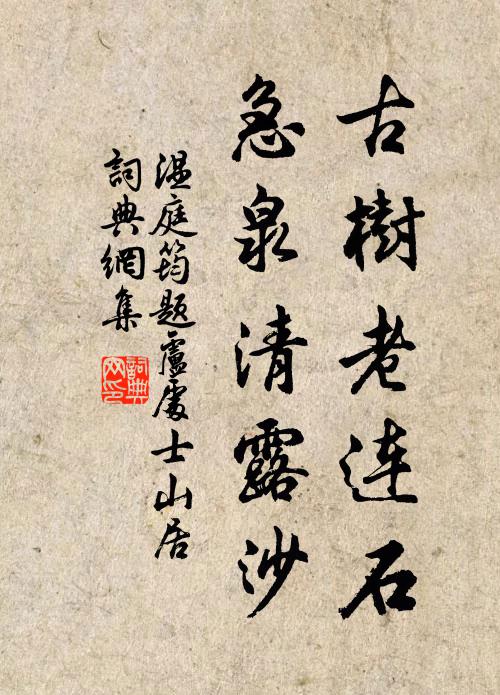 古樹老連石
急泉清露沙
温庭筠題盧處士山居
詞典網集
詞典
网印